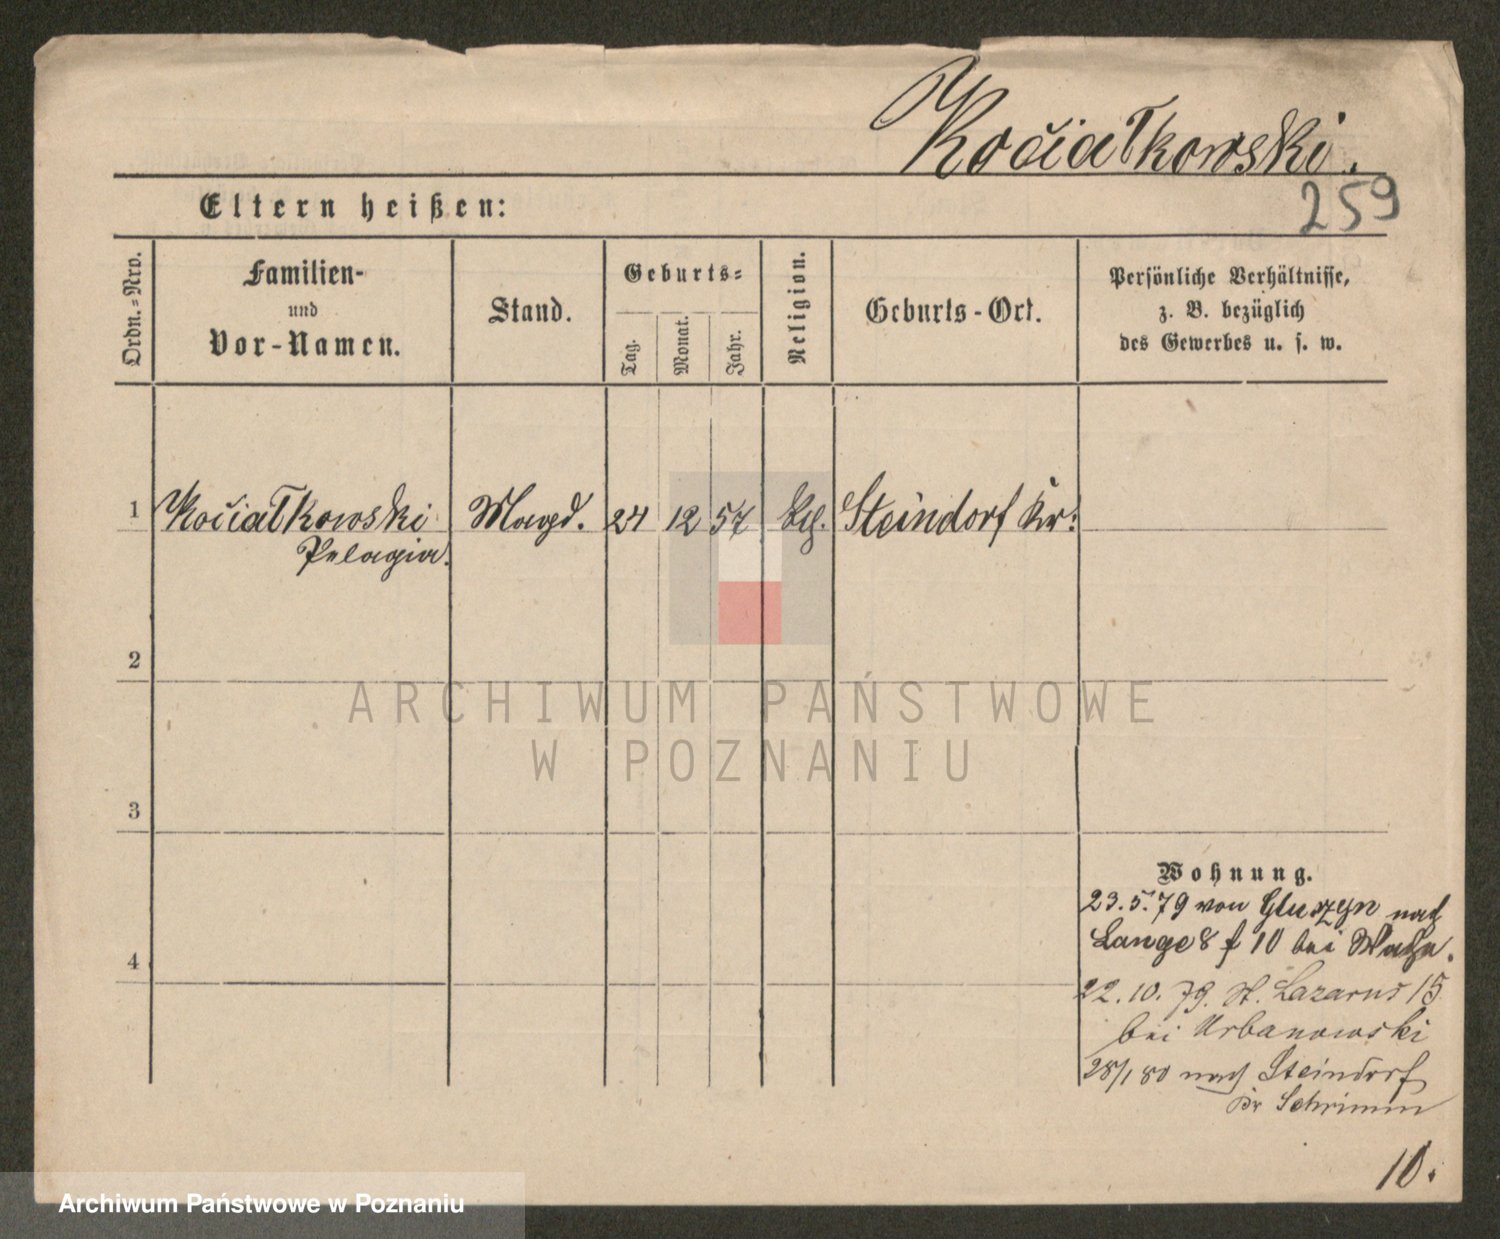 Kočiałkowski.
259
Eltern heißen:
Ordn.=Nro.
Familien-
und
Vor-Namen.
Stand.
Geburts=
Tag.
Monat.
Jahr.
Religion.
Geburts-Ort.
Persönliche Verhältnisse,
z. B. bezüglich
des Gewerbes u. s. w.
1 Kočiałkowski Magd. 24 12 57 Steindorf Kr:
Pelagia.
2
ARCHIWUM PAŃSTWOWE
W POZNANIU
3
Wohnung.
23.5.79 von Gluszyn nach
Lange 10 bei
4
22.10.79. St. Lazarus 15
bei Urbanowski
28/1 80 nach Steindorf
Kr Schrimm
10.
Archiwum Państwowe w Poznaniu